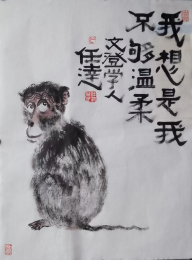 我想是我
不够温柔
文登学人
任達